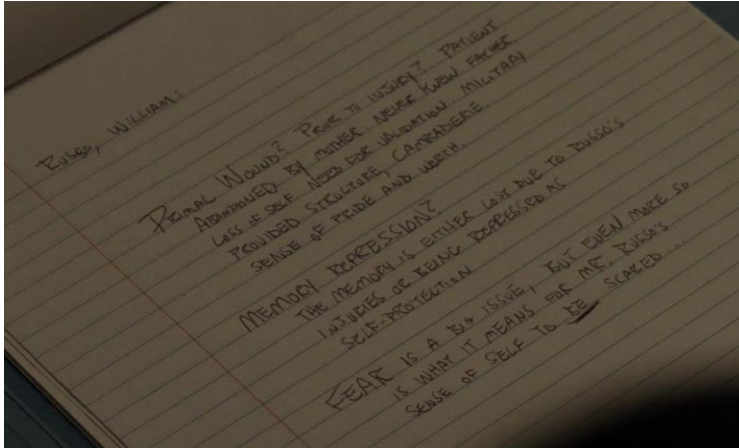 RUSSO, WILLIAM:
PRIMAL WOUND? PRIOR TO INJURY? PATIENT
ABANDONED BY MOTHER. NEVER KNEW FATHER.
LOSS OF SELF. NEED FOR VALIDATION. MILITARY
PROVIDED STRUCTURE, CAMRADERIE.
SENSE OF PRIDE AND WORTH.
MEMORY REPRESSION?
THE MEMORY IS EITHER LOST DUE TO RUSSO'S
INJURIES OR BEING REPRESSED AS
SELF-PROTECTION
FEAR IS A BIG ISSUE, BUT EVEN MORE SO
IS WHAT IT MEANS FOR MR. RUSSO'S
SENSE OF SELF TO BE SCARED...